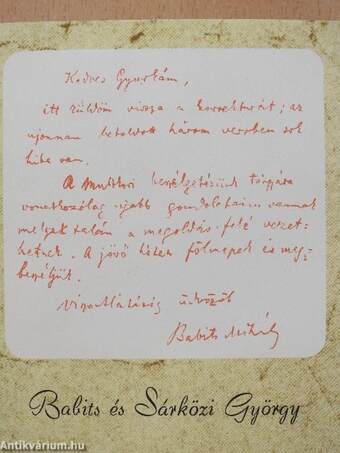 Kedves Gyurkám,
itt küldöm vissza a korrekturát; az
ujonnan betoldott három versben sok
hiba van.
A multkori beszélgetésünk tárgyára
vonatkozólag ujabb gondolataim vannak
melyek talán a megoldás felé vezet-
hetnek. A jövő héten fölmegek és meg-
beszéljük.
Viszontlátásig üdvözöl
Babits Mihály
Babits és Sárközi György
Antikvárium.hu